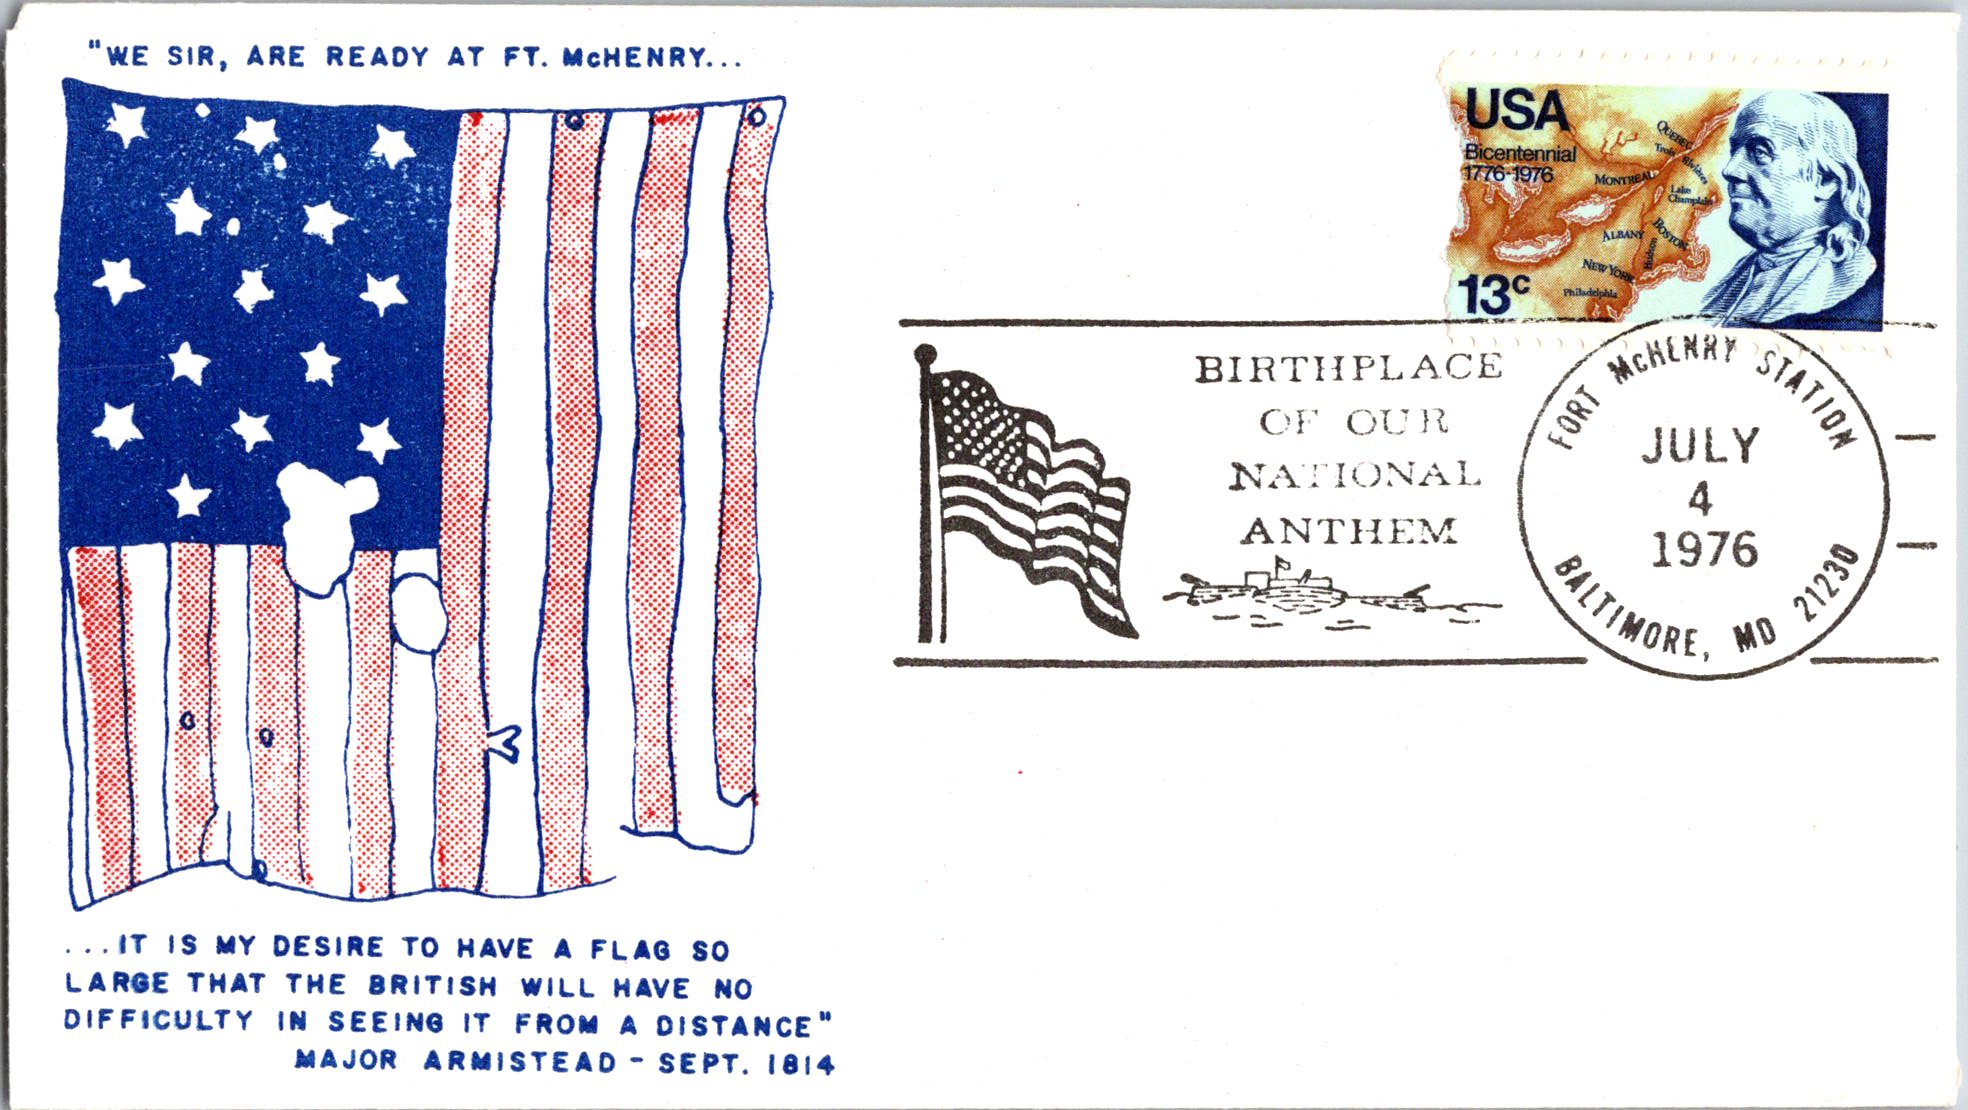 "WE SIR, ARE READY AT FT. McHENRY...
USA
Bicentennial
1776-1976
QUEBEC
Trois Rivières
MONTREAL
Lake
Champlain
ALBANY
BOSTON
Hudson
NEW YORK
Philadelphia
13c
BIRTHPLACE
OF OUR
NATIONAL
ANTHEM
FORT McHENRY STATION
JULY
4
1976
BALTIMORE, MD 21230
...IT IS MY DESIRE TO HAVE A FLAG SO
LARGE THAT THE BRITISH WILL HAVE NO
DIFFICULTY IN SEEING IT FROM A DISTANCE"
MAJOR ARMISTEAD - SEPT. 1814